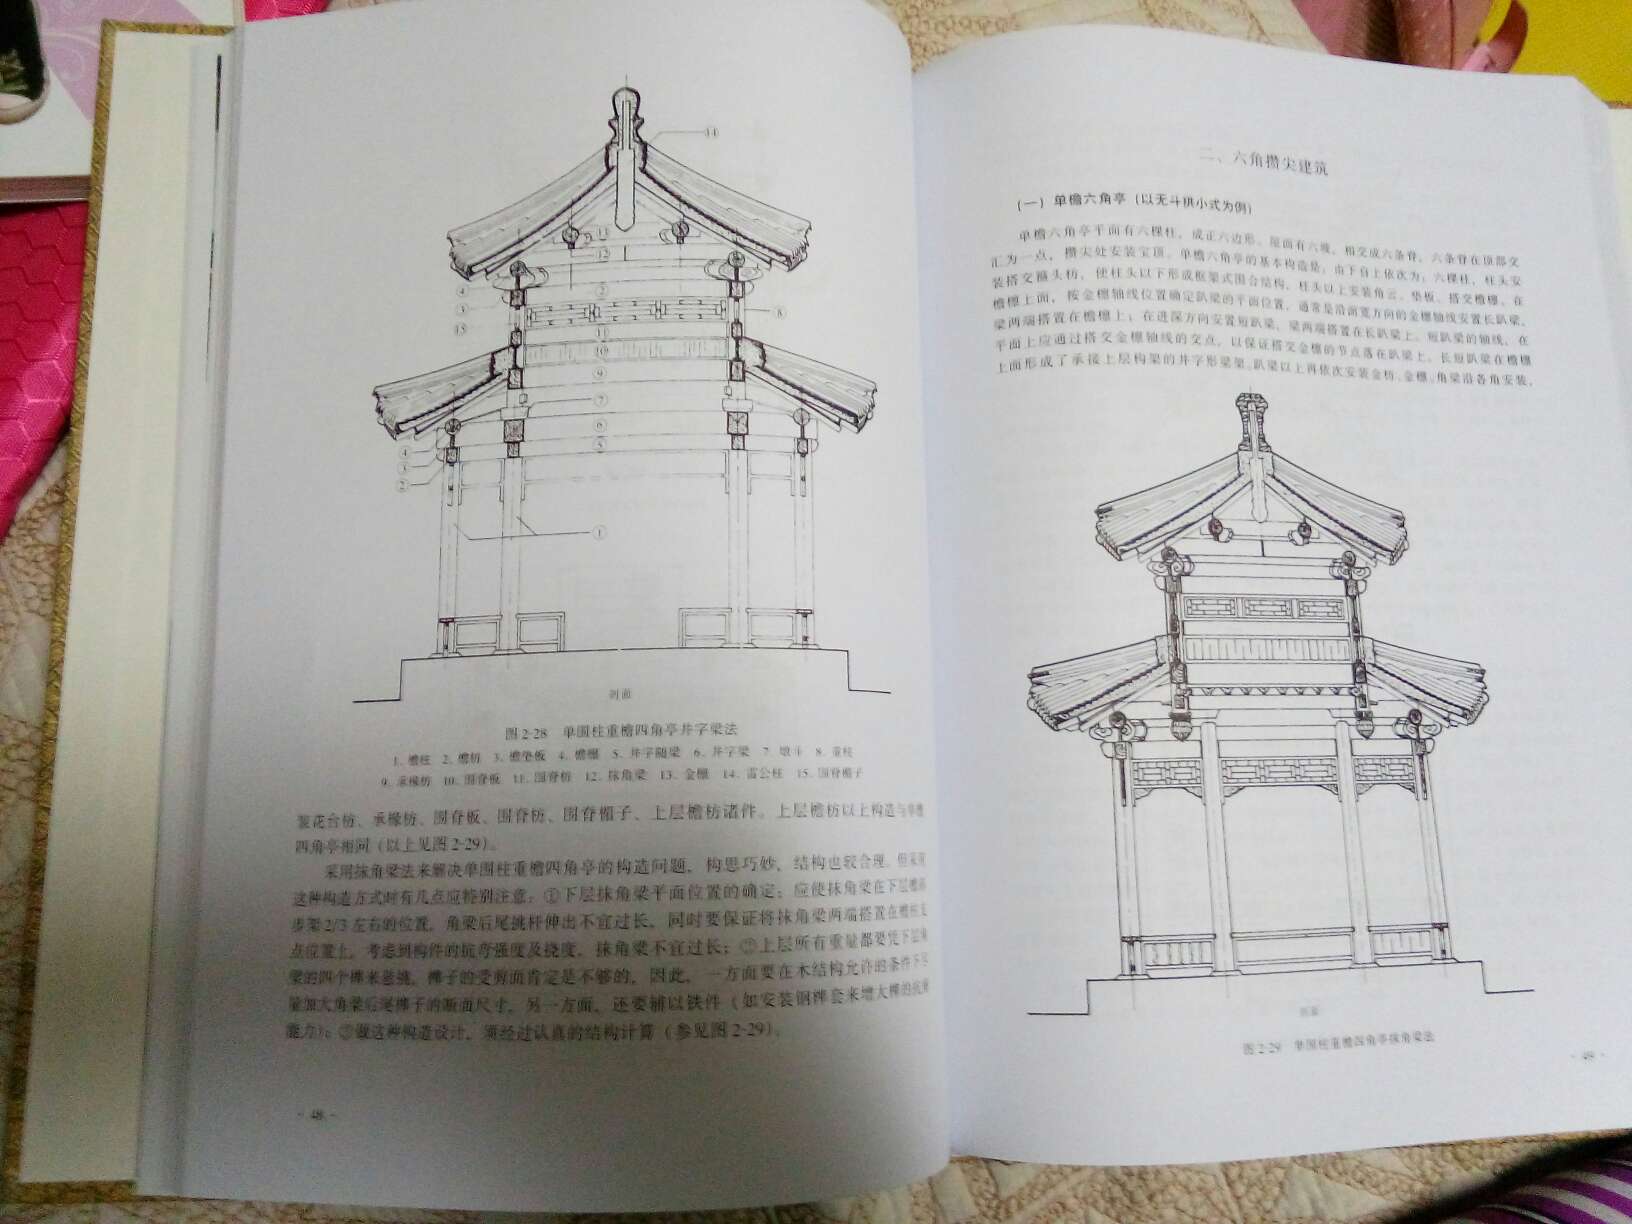 14
13
12
4
2
3
8
15
11
10
9
7
6
4
5
3
2
1
剖面
图 2-28 单围柱重檐四角亭井字梁法
1. 檐柱 2. 檐枋 3. 檐垫板 4. 檐檩 5. 井字随梁 6. 井字梁 7. 墩斗 8. 童柱
9. 承椽枋 10. 围脊板 11. 围脊枋 12. 抹角梁 13. 金檩 14. 雷公柱 15. 围脊楣子
装花台枋、承椽枋、围脊板、围脊枋、围脊楣子、上层檐枋诸件。上层檐枋以上构造与单檐
四角亭相同（以上见图 2-29）。
采用抹角梁法来解决单围柱重檐四角亭的构造问题，构思巧妙，结构也较合理。但采用
这种构造方式时有几点应特别注意：①下层抹角梁平面位置的确定：应使抹角梁在下层檐
步架 2/3 左右的位置，角梁后尾挑杆伸出不宜过长，同时要保证将抹角梁两端搭置在檐柱支
点位置上。考虑到构件的抗弯强度及挠度，抹角梁不宜过长；②上层所有重量都要凭下层角
梁的四个榫来悬挑，榫子的受剪面肯定是不够的，因此，一方面要在木结构允许的条件下尽
量加大角梁后尾榫子的断面尺寸，另一方面，还要辅以铁件（如安装钢榫套来增大榫的抗剪
能力）；③做这种构造设计，须经过认真的结构计算（参见图 2-29）。
· 48 ·
二、六角攒尖建筑
（一）单檐六角亭（以无斗拱小式为例）
单檐六角亭平面有六棵柱，成正六边形。屋面有六坡，相交成六条脊，六条脊在顶部交
汇为一点，攒尖处安装宝顶。单檐六角亭的基本构造是：由下自上依次为：六棵柱，柱头安
装搭交箍头枋，使柱头以下形成框架式围合结构。柱头以上安装角云、垫板、搭交檐檩。在
檐檩上面，按金檩轴线位置确定趴梁的平面位置，通常是沿面宽方向的金檩轴线安置长趴梁，
梁两端搭置在檐檩上；在进深方向安置短趴梁，梁两端搭置在长趴梁上。短趴梁的轴线，在
平面上应通过搭交金檩轴线的交点，以保证搭交金檩的节点落在趴梁上。长短趴梁在檐檩
上面形成了承接上层构架的井字形梁架。趴梁以上再依次安装金枋、金檩。角梁沿各角安装，
剖面
图 2-29 单围柱重檐四角亭抹角梁法
· 49 ·